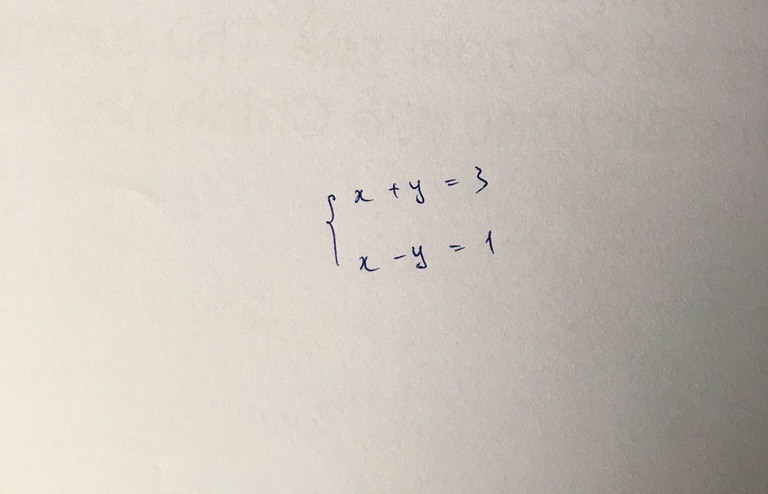 x + y = 3
x - y = 1